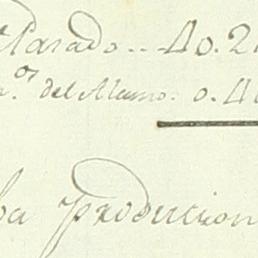 Clarado.. 40.2
n.os del Alamo. 0.4
ba produccion